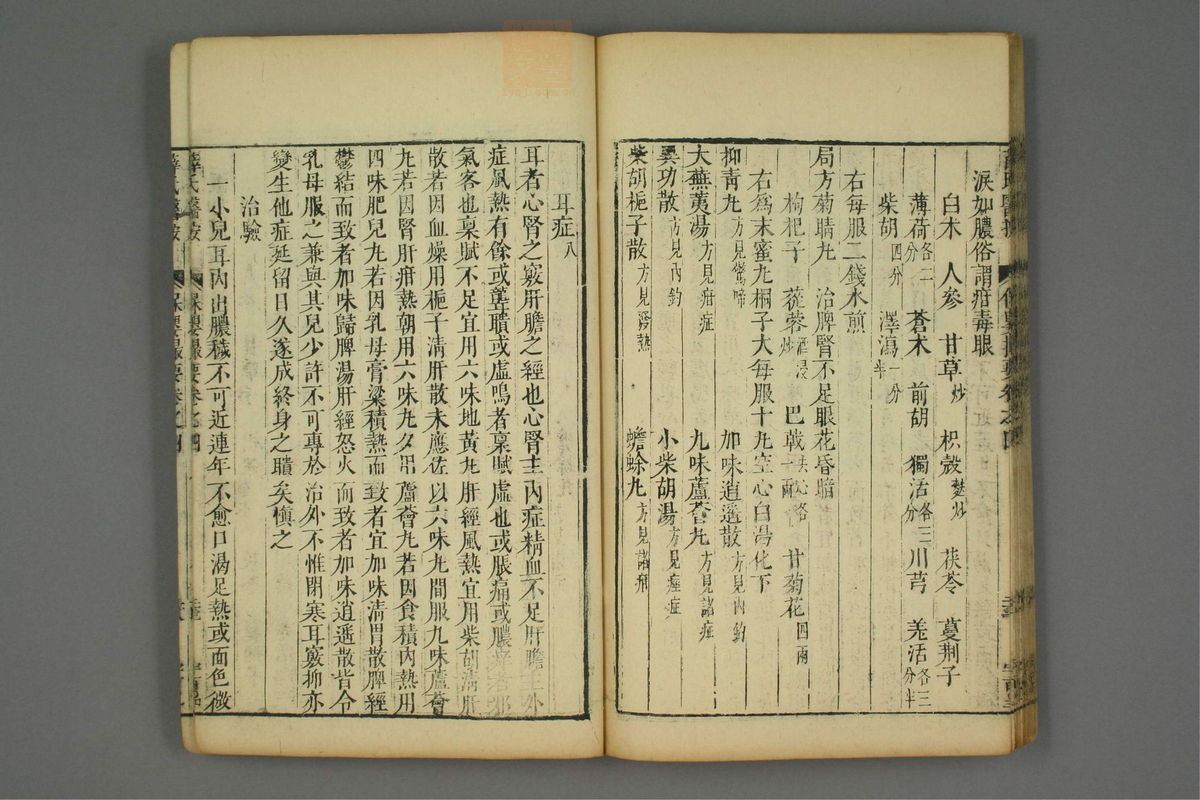 淚如膿俗謂疳毒眼
白木 人參 甘草炒 枳殼麩炒 茯苓 蔓荆子
薄荷各二分 蒼木 前胡 獨活各三分 川芎 羗活各三分半
柴胡四分 澤瀉一分半
右每服二錢水煎
局方菊睛丸 治脾腎不足眼花昏暗
枸𣏌子 蓯蓉酒浸炒 巴戟去心一兩 甘菊花四兩
右爲末蜜丸桐子大每服十丸空心白湯化下
抑青丸方見驚啼 加味逍遙散方見內釣
大蕪荑湯方見疳症 九味蘆薈丸方見諸疳
異功散方見內釣 小柴胡湯方見痙症
柴胡梔子散方見發熱 蟾蜍丸方見諸疳
耳症八
耳者心腎之竅肝膽之經也心腎主內症精血不足肝膽主外
症風熱有餘或聾聵或虛鳴者禀賦虛也或脹痛或膿痒者邪
氣客也禀賦不足宜用六味地黃丸肝經風熱宜用柴胡淸肝
散若因血燥用梔子淸肝散未應佐以六味丸間服九味蘆薈
丸若因腎肝疳熱朝用六味丸夕用蘆薈丸若因食積內熱用
四味肥兒丸若因乳母膏粱積熱而致者宜加味淸胃散脾經
鬱結而致者加味歸脾湯肝經怒火而致者加味逍遙散皆令
乳母服之兼與其兒少許不可專於治外不惟閉塞耳竅抑亦
變生他症延留日久遂成終身之聵矣慎之
治驗
一小兒耳內出膿穢不可近連年不愈口渴足熱或面色微
薛氏醫按 保嬰撮要卷之四